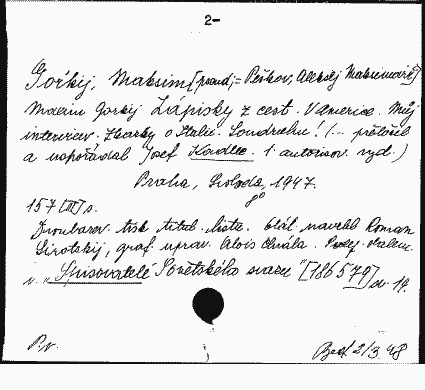 2-
Goŕkij, Maksim [pseud; = Peškov, Aleksěj Maksimovič]
Maxim Gorkij Zápisky z cest. V Americe. Můj
interview. Zkazky o Italii. Soudruhu! (... přeložil
a uspořádal Josef Kadlec. 1. autorisov. vyd.)
Praha, Svoboda, 1947.
157 [III] s.
Dvoubarev. tisk titul. listu. Obál. navrhl Roman
Sirotskij, graf. uprav. Alois Chvála.
v. "Spisovatelé Sovětského svazu" [186579] sv. 19.
P.v. 2/3. 48